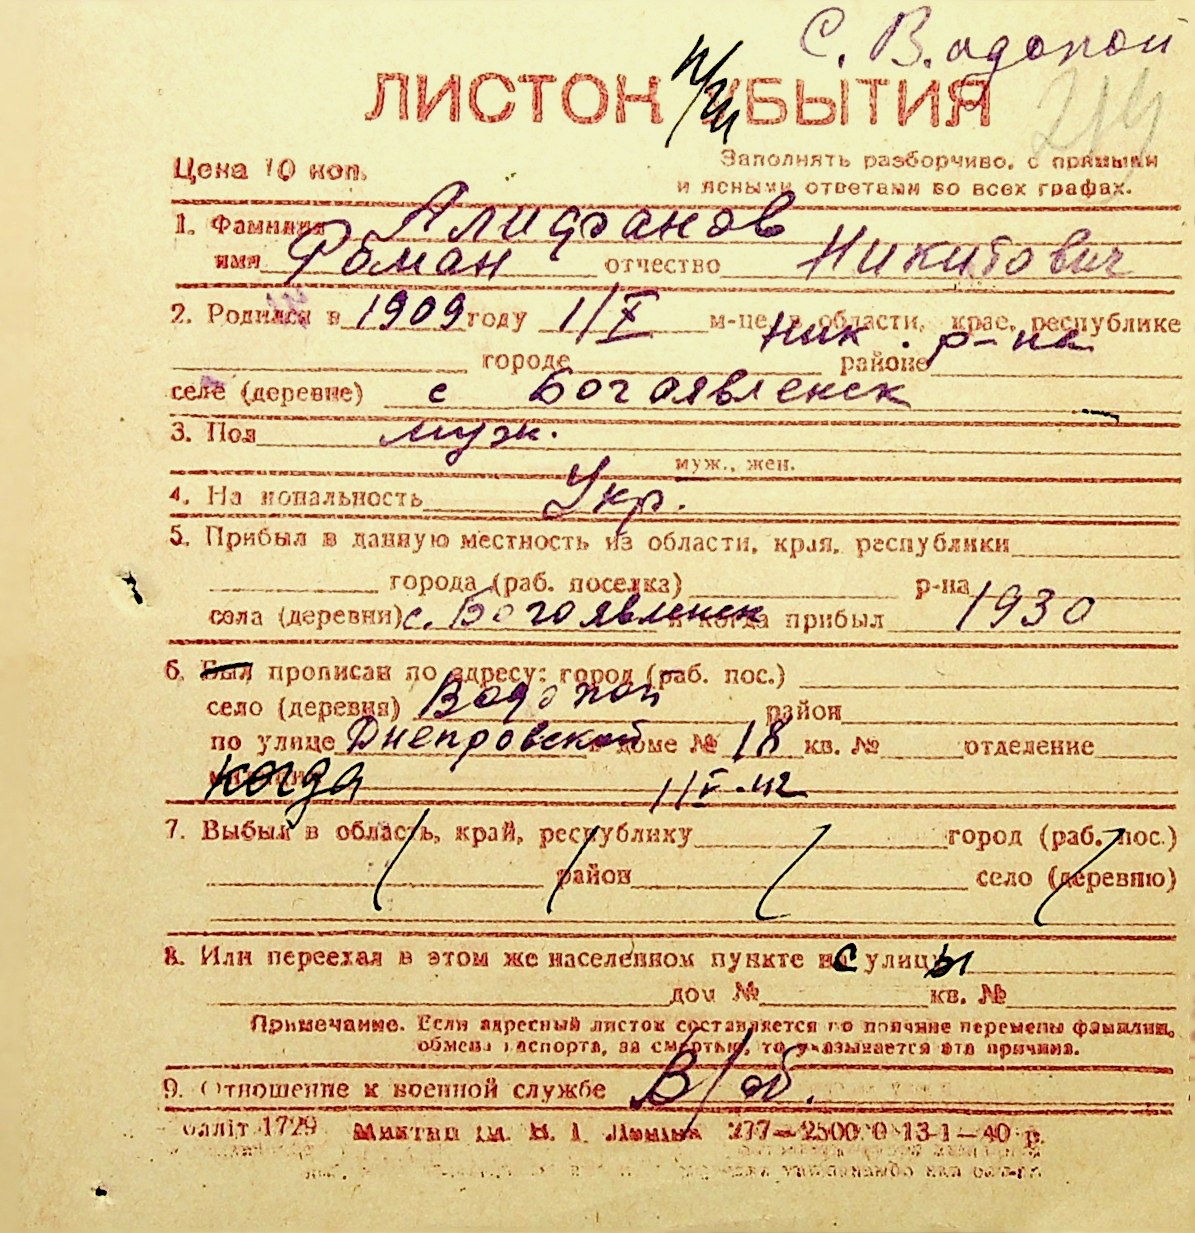 С. Водопой
ЛИСТОК ПРИБЫТИЯ
214
Цена 10 коп.
Заполнять разборчиво, с прямыми
и ясными ответами во всех графах.
1. Фамилия Алифанов
имя Роман отчество Никитович
2. Родился в 1909 году 1/X м-це в области, крае, республике
городе районе Ник. р-на
селе (деревне) с Богоявленск
3. Пол муж.
муж., жен.
4. Национальность Укр.
5. Прибыл в данную местность из области, края, республики
города (раб. поселка) р-на
села (деревни) с. Богоявленск и когда прибыл 1930
6. Был прописан по адресу: город (раб. пос.)
село (деревня) Водопой район
по улице Днепровской в доме № 18 кв. № отделение
когда 1/V-42
7. Выбыл в область, край, республику город (раб. пос.)
район село (деревню)
8. Или переехал в этом же населенном пункте с улицы
дом № кв. №
Примечание. Если адресный листок составляется по причине перемены фамилии,
обмена паспорта, за смертью, то указывается эта причина.
9. Отношение к военной службе В/об.
1729 277—25000 0 13-1—40 р.